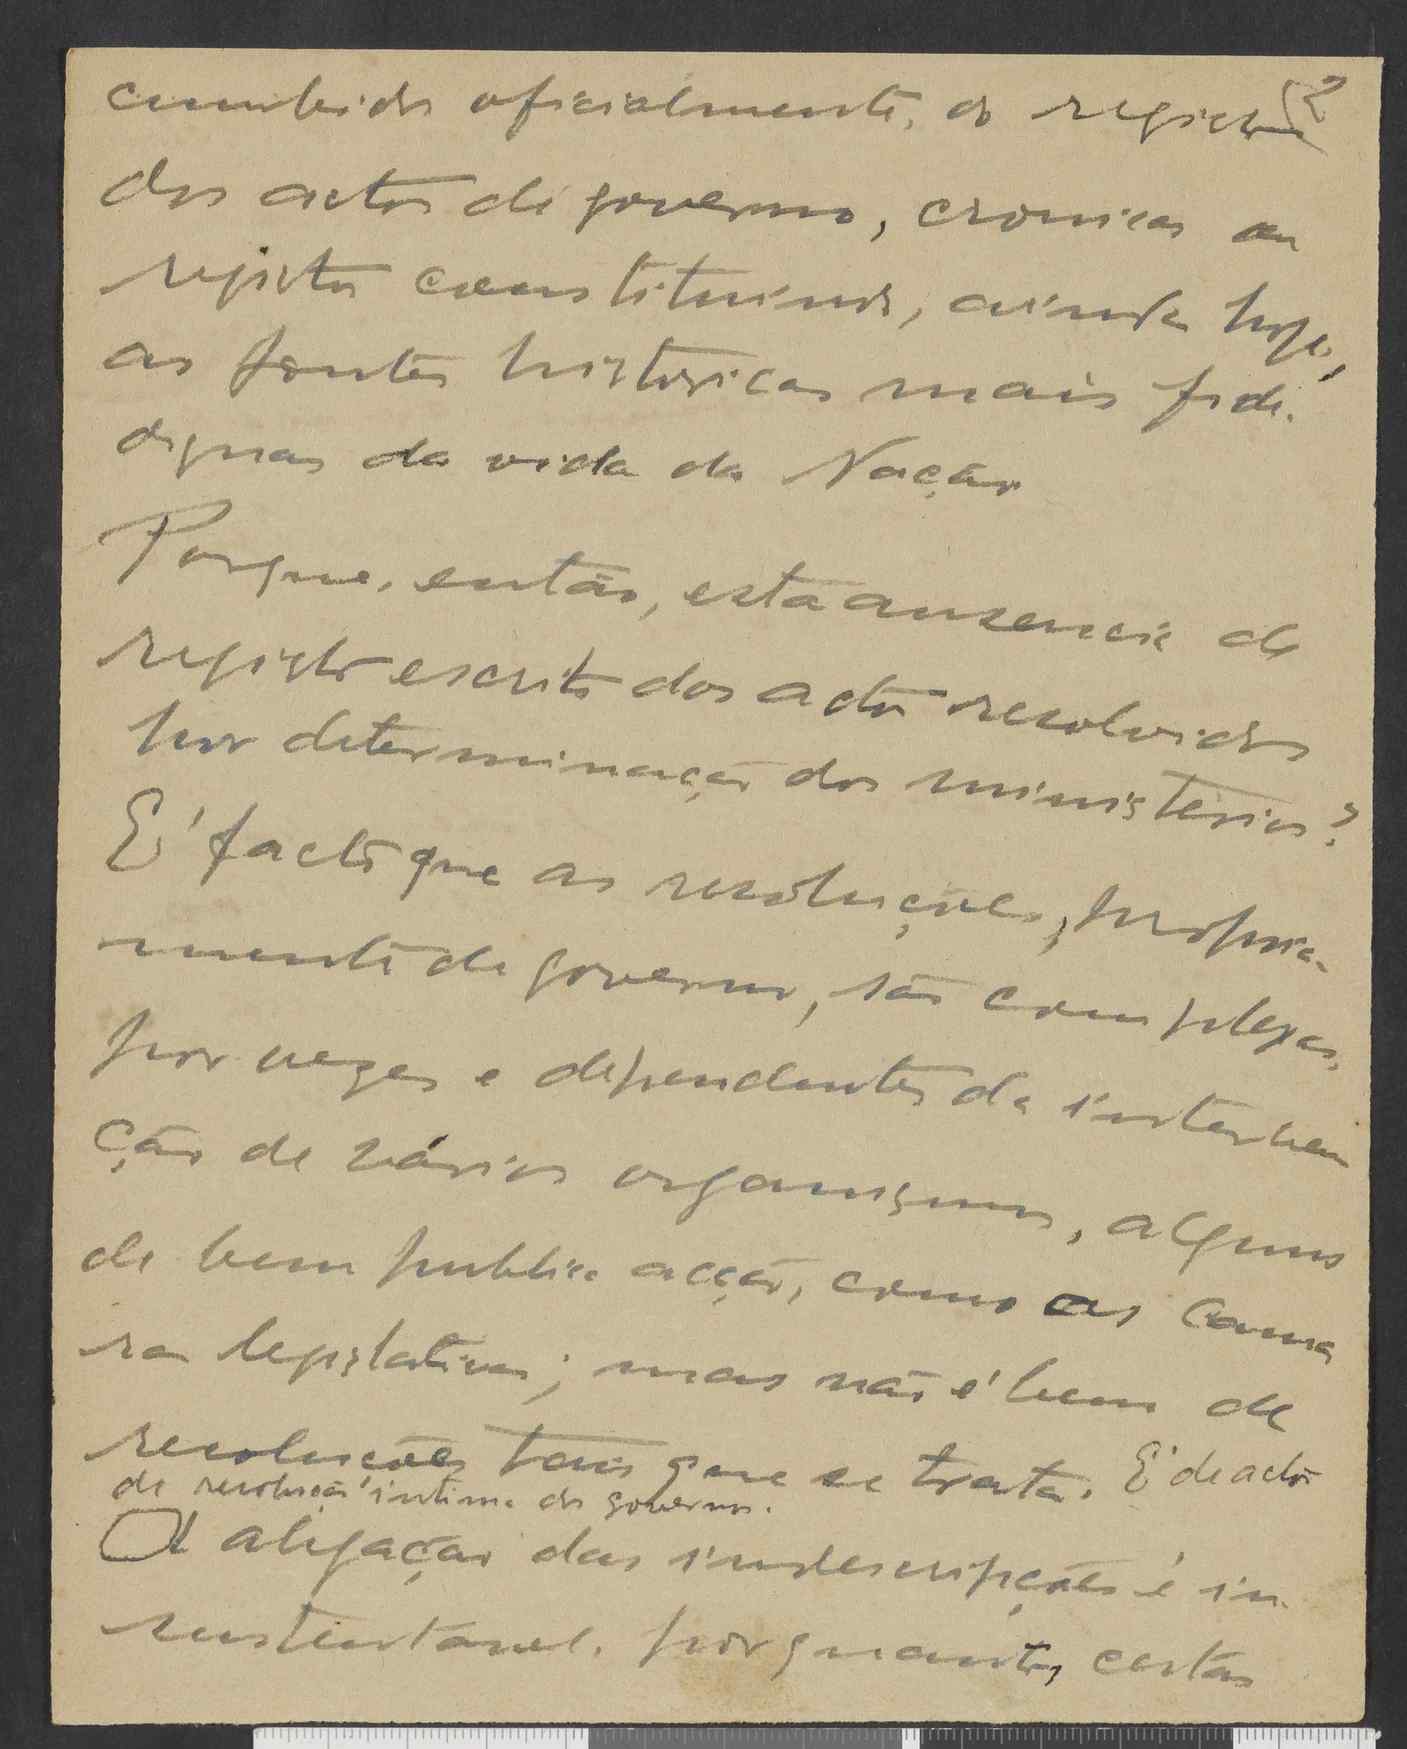 2
cumbidos oficialmente, do registro
dos actos de governo, cronicas ou
registos constituindo, ainda hoje,
as fontes historicas mais fide-
dignas da vida da Nação
Porque, então, esta ausencia de
registo escrito dos actos resolvidos
por determinação dos ministerios?
E' facto que as resoluções, propria-
mente de governo, são complexas,
por vezes e dependentes da interven
ção de vários organismos, alguns
de bem publica acção, como as cama
ra legislativas; mas não é bem de
resoluções tais que se trata. E' de actos
de resolução intima do governo.
A alegação das indescripções é in-
sustentavel. porquanto, certas